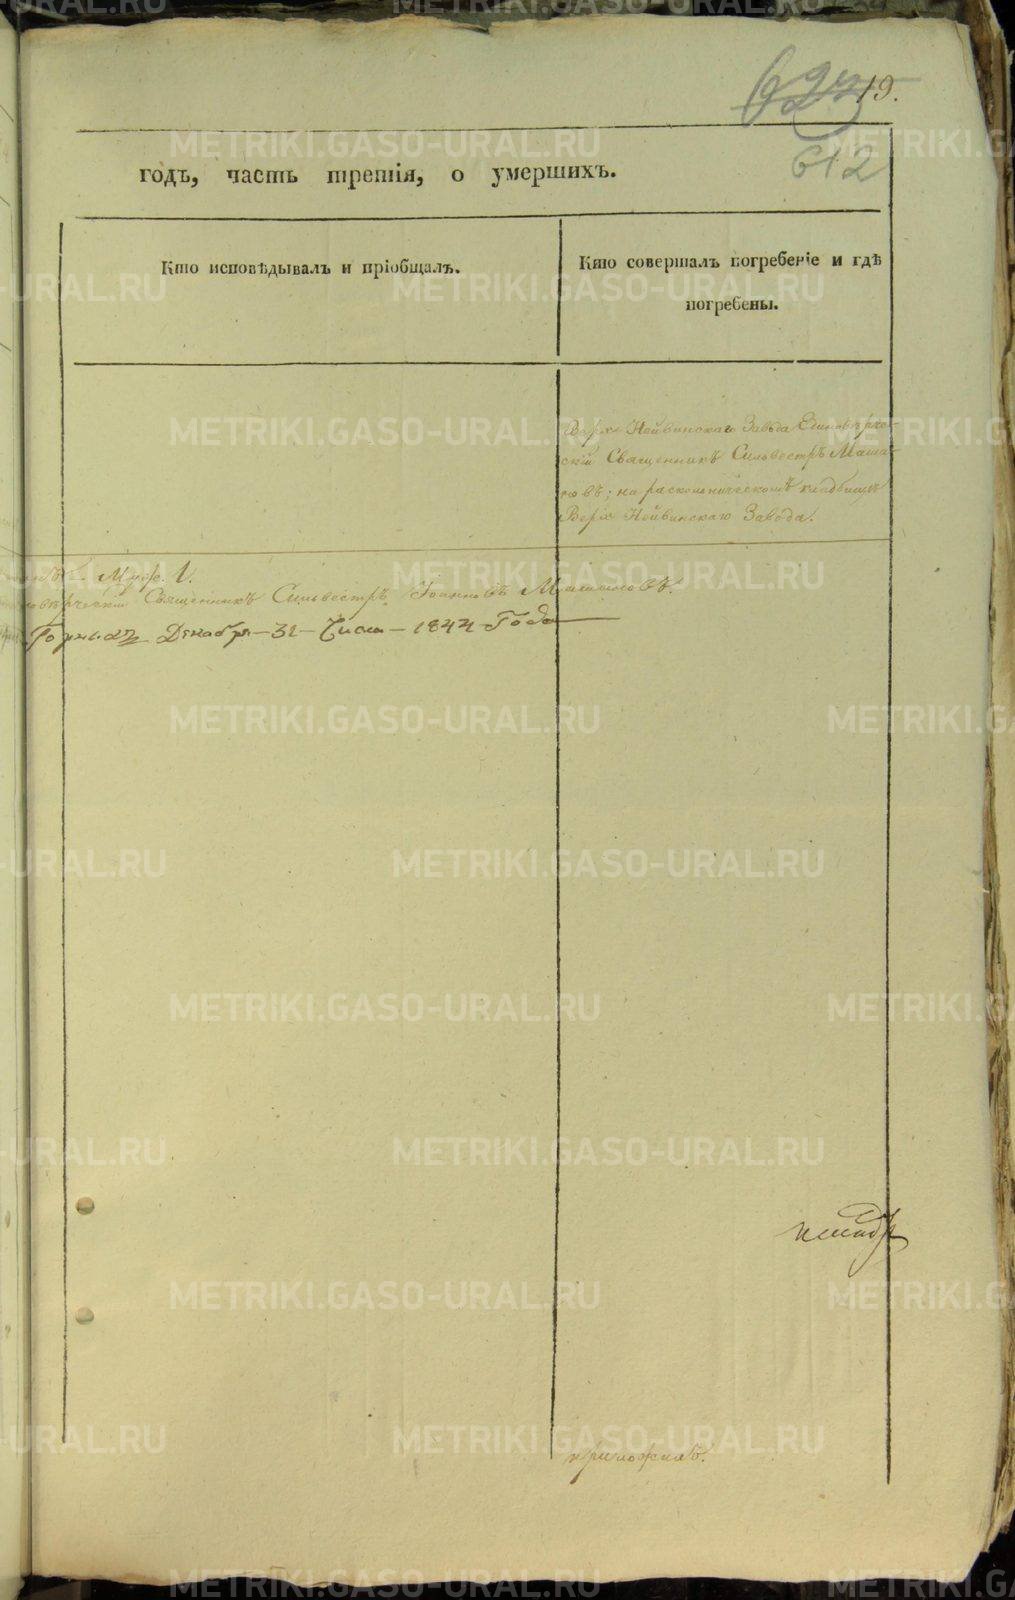 19.
612
годъ, часть третія, о умершихъ.
Кто исповѣдывалъ и пріобщалъ.
Кто совершалъ погребеніе и гдѣ
погребены.
Верхъ Нейвинскаго Завода Единовѣрче-
скій Священникъ Сильвестръ
на раскольническомъ кладбищѣ
Верхъ Нейвинскаго Завода.
Священникъ Сильвестръ Іоанновъ
Декабря 31 Числа 1844 Года
приложилъ.
METRIKI.GASO-URAL.RU